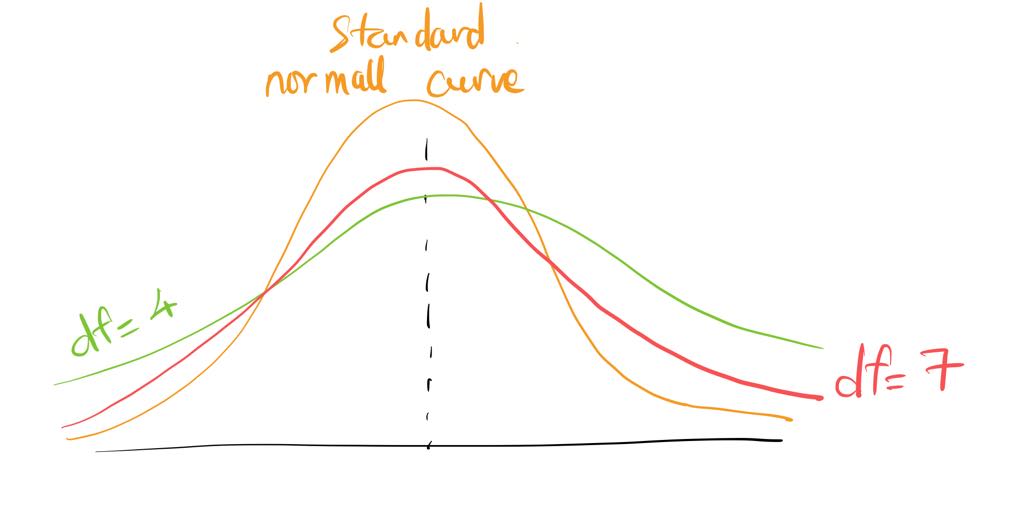 Standard
normall curve
df= 4
df= 7